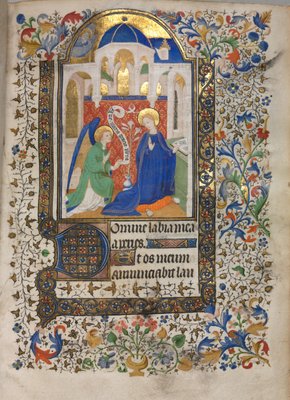 Domine labia mea
aperies.
Et os meum
annunciabit lau